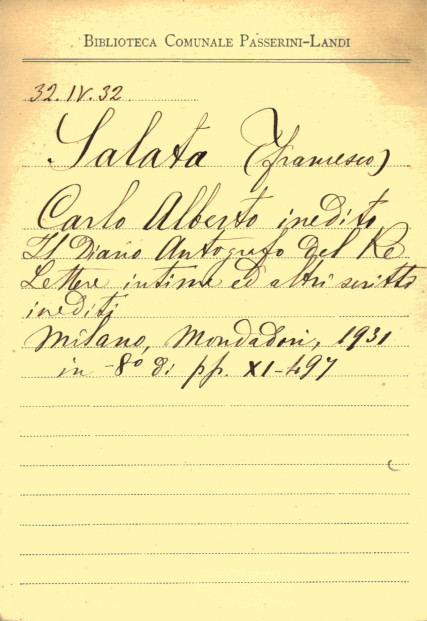 BIBLIOTECA COMUNALE PASSERINI-LANDI
32.IV.32
Salata (Francesco)
Carlo Alberto inedito
Il Diario Autografo del Re
Lettere intime ed altri scritti
inediti
Milano, Mondadori, 1931
in -8º di pp. XI-497